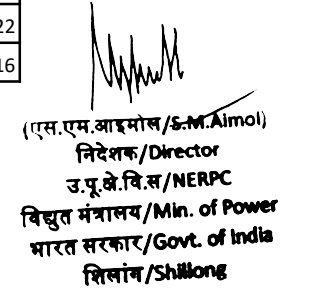 22
16
(एस.एम.आइमोल/S.M.Aimol)
निदेशक/Director
उ.पू.क्षे.वि.स/NERPC
विद्युत मंत्रालय/Min. of Power
भारत सरकार/Govt. of India
शिलांग/Shillong